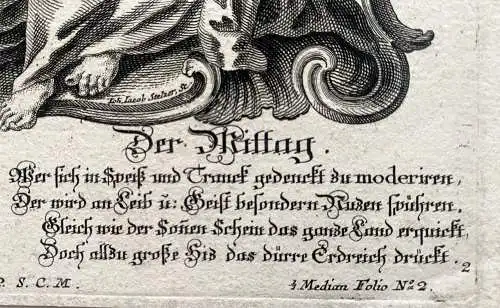 Joh. Jacob Stelzer, Sc.
Der Mittag.
Wer sich in Speiß und Tranck gedenckt zu moderiren,
Der wird an Leib u: Geist besondern Nuzen spühren.
Gleich wie der Sonen Schein das ganze Land erquickt,
Doch allzu große Hiz das dürre Erdreich drückt.
2
P. S. C. M.
4 Median Folio Nº 2.